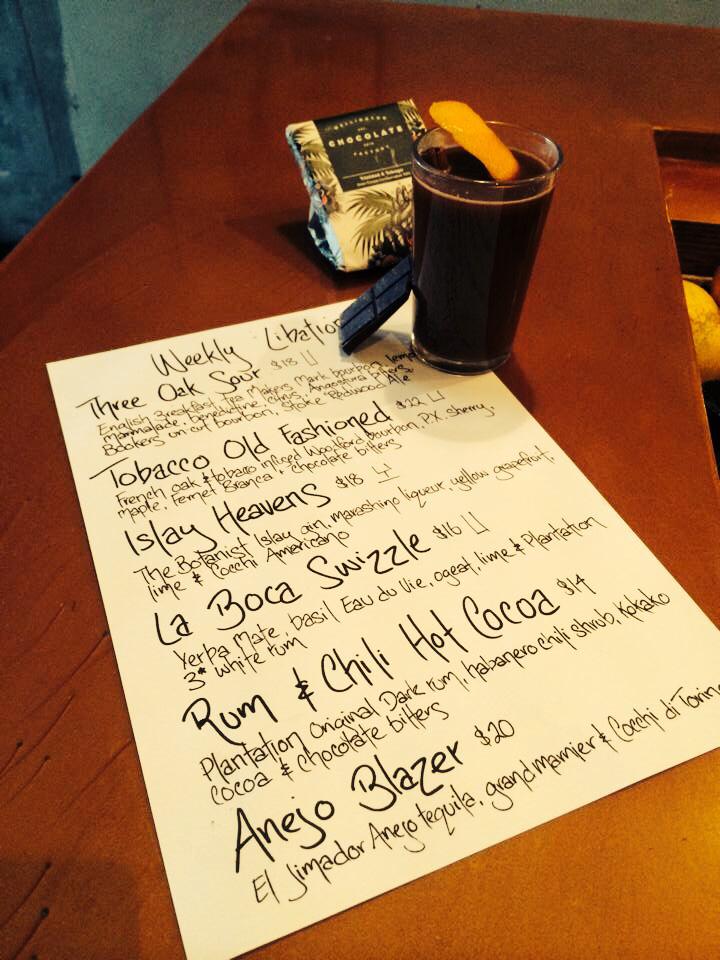 WELLINGTON
CHOCOLATE
FACTORY
Trinidad & Tobago
Weekly Libation
Three Oak Sour $18
English Breakfast Tea Makers Mark bourbon, lemon
marmalade, benedictine, citrus, Angostura bitters,
Bookers un cut bourbon, Stoke Redwood Ale
Tobacco Old Fashioned $22
French oak & tobacco infused Woodford bourbon, P.X. sherry,
maple, Fernet Branca & chocolate bitters
Islay Heavens $18
The Botanist Islay gin, marashino liqueur, yellow grapefruit,
lime & Cocchi Americano
La Boca Swizzle $16
Yerba Mate, basil Eau du Vie, ogeat, lime & Plantation
3* white rum
Rum & Chili Hot Cocoa $14
Plantation Original Dark rum, habanero chili shrub, Kokako
cocoa & chocolate bitters
Anejo Blazer $20
El Jimador Anejo tequila, grand marnier & Cocchi di Torino